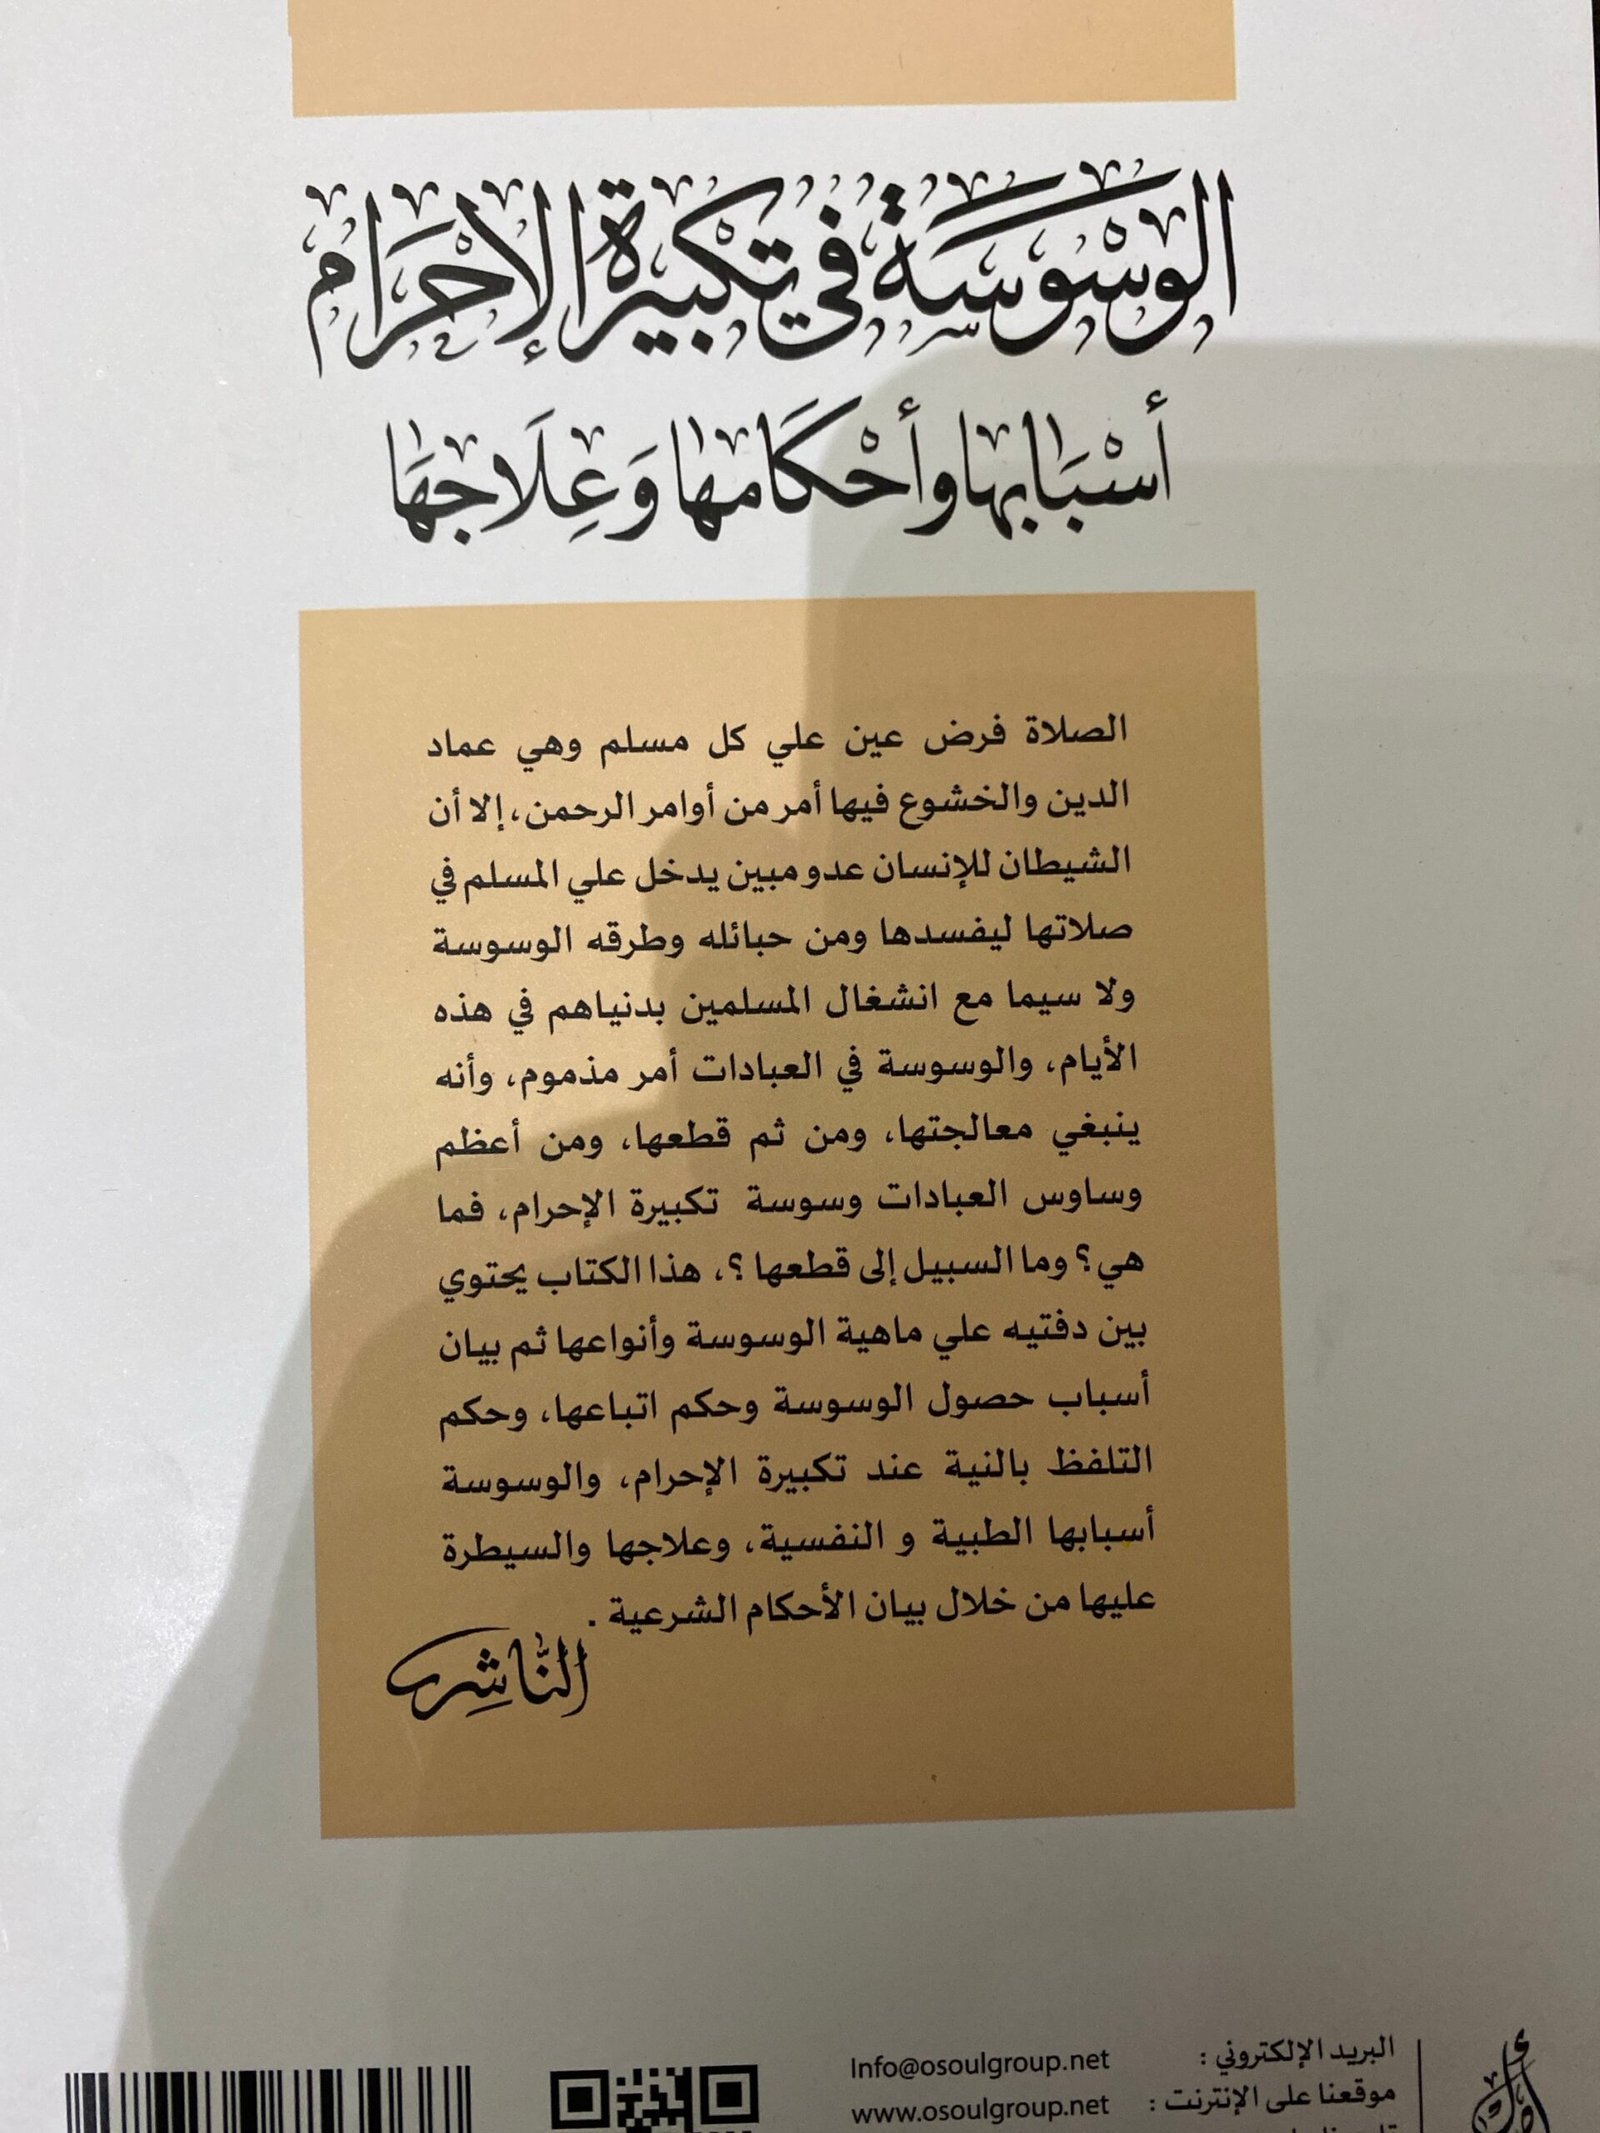 الوسْوسَة في تكبيرة الإحْرَام
أسْبَابها وأحْكَامها وَعِلَاجهَا
الصلاة فرض عين علي كل مسلم وهي عماد
الدين والخشوع فيها أمر من أوامر الرحمن، إلا أن
الشيطان للإنسان عدو مبين يدخل علي المسلم في
صلاتها ليفسدها ومن حبائله وطرقه الوسوسة
ولا سيما مع انشغال المسلمين بدنياهم في هذه
الأيام، والوسوسة في العبادات أمر مذموم، وأنه
ينبغي معالجتها، ومن ثم قطعها، ومن أعظم
وساوس العبادات وسوسة تكبيرة الإحرام، فما
هي؟ وما السبيل إلى قطعها ؟، هذا الكتاب يحتوي
بين دفتيه علي ماهية الوسوسة وأنواعها ثم بيان
أسباب حصول الوسوسة وحكم اتباعها، وحكم
التلفظ بالنية عند تكبيرة الإحرام، والوسوسة
أسبابها الطبية و النفسية، وعلاجها والسيطرة
عليها من خلال بيان الأحكام الشرعية .
النَّاشِر
البريد الإلكتروني : Info@osoulgroup.net
موقعنا على الإنترنت : www.osoulgroup.net